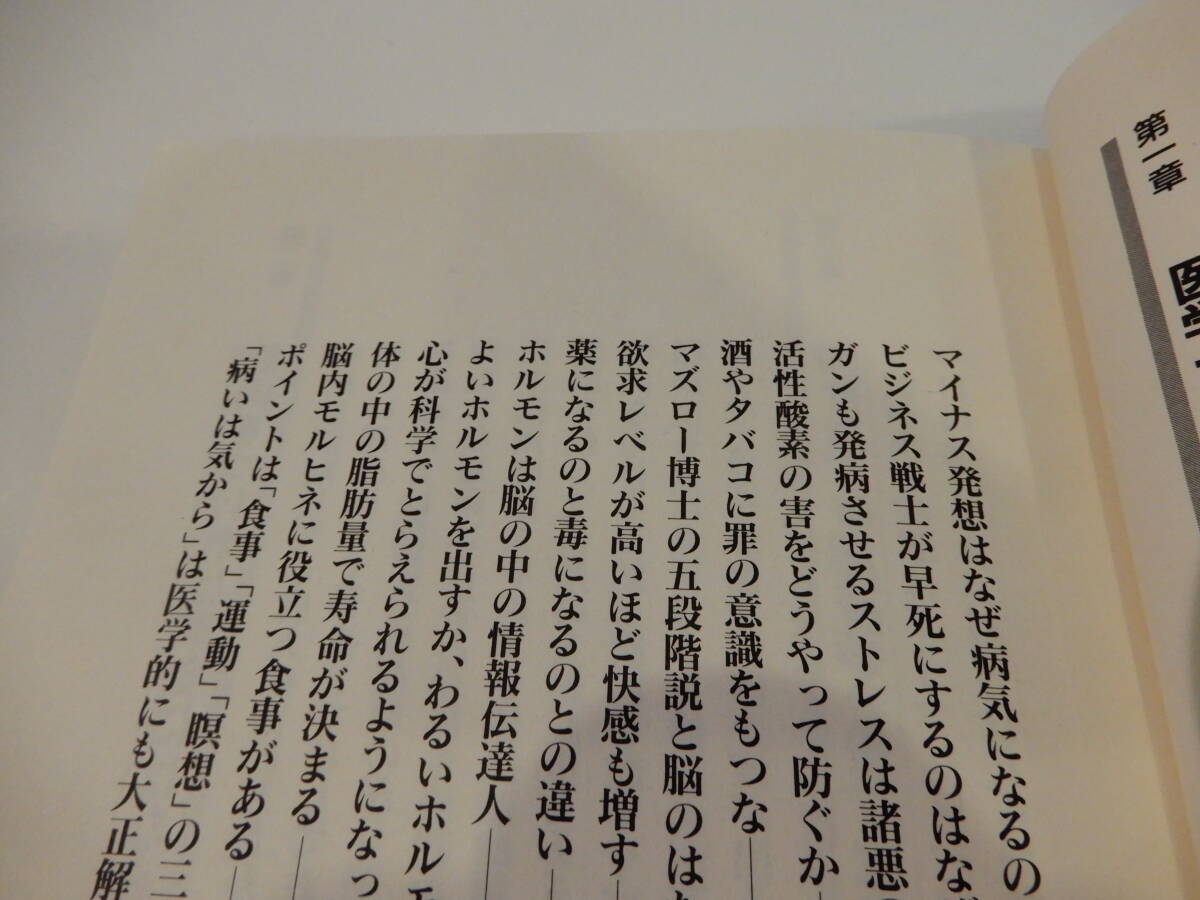 第一章
医学
マイナス発想はなぜ病気になるの
ビジネス戦士が早死にするのはな
ガンも発病させるストレスは諸悪の
活性酸素の害をどうやって防ぐか
酒やタバコに罪の意識をもつな
マズロー博士の五段階説と脳のは
欲求レベルが高いほど快感も増す
薬になるのと毒になるのとの違い
ホルモンは脳の中の情報伝達人
よいホルモンを出すか、わるいホル
心が科学でとらえられるようになっ
体の中の脂肪量で寿命が決まる
脳内モルヒネに役立つ食事がある
ポイントは「食事」「運動」「瞑想」の三
「病いは気から」は医学的にも大正解